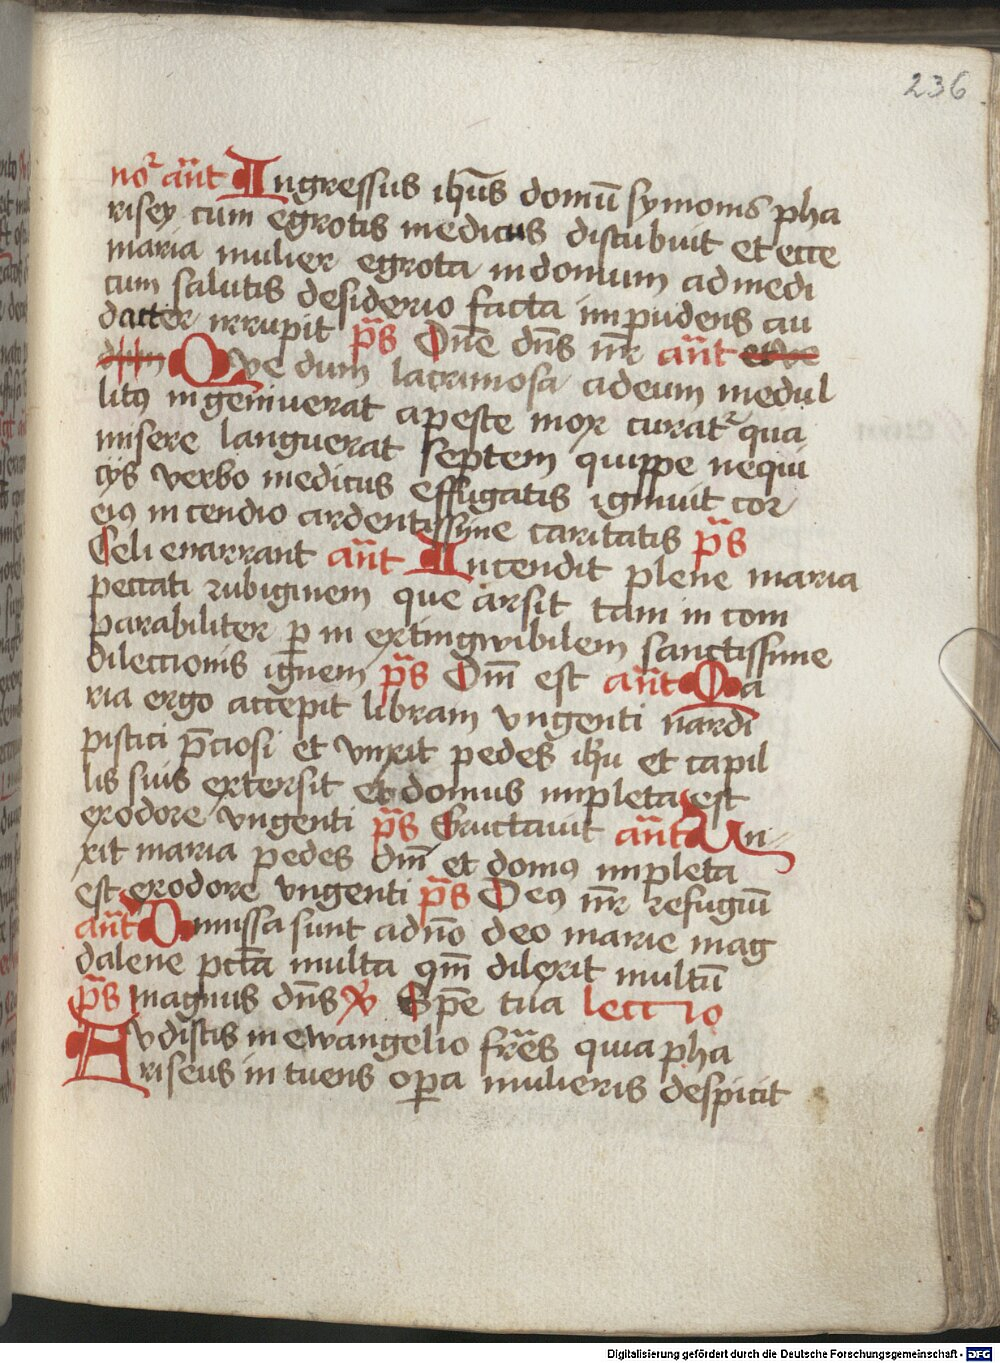 236
noᷣ an̄t Ingressus ih̄us domū symonis pha
risey cum egrotis medicus discubuit et ecce
maria mulier egrota in domum ad medi
cum salutis desiderio facta impudens au
dacter irrupit p̄s Dn̄e dn̄s nr̄
an̄t Que dum lacrimosa ad eum medul
litꝰ ingemiuerat a peste mox curatᷣ qua
misere languerat Septem quippe nequi
cijs verbo medicus effugatis igniuit cor
eiꝰ incendio ardentissime caritatis p̄s
Celi enarrant an̄t Incendit plene maria
peccati rubiginem que arsit tam in com
parabiliter p̄ in extingwibilem sanctissime
dileccionis ignem p̄s Dn̄i est an̄t Ma
ria ergo accepit libram vngenti nardi
pistici p̄ciosi et vnxit pedes ih̄u et capil
lis suis extersit et domus impleta est
ex odore vngenti p̄s Eructauit an̄t Vn
xit maria pedes dn̄i et domꝰ impleta
est ex odore vngenti p̄s Deꝰ nr̄ refugiū
an̄t Dimissa sunt a dn̄o deo marie mag
dalene pc̄ta multa qm̄ dilexit multū
p̄s magnus dn̄s ℣ Spē tua lectio
Avdistis in ewangelio fr̄es quia pha
riseus intuens op̄a mulieris despicit
Digitalisierung gefördert durch die Deutsche Forschungsgemeinschaft - DFG